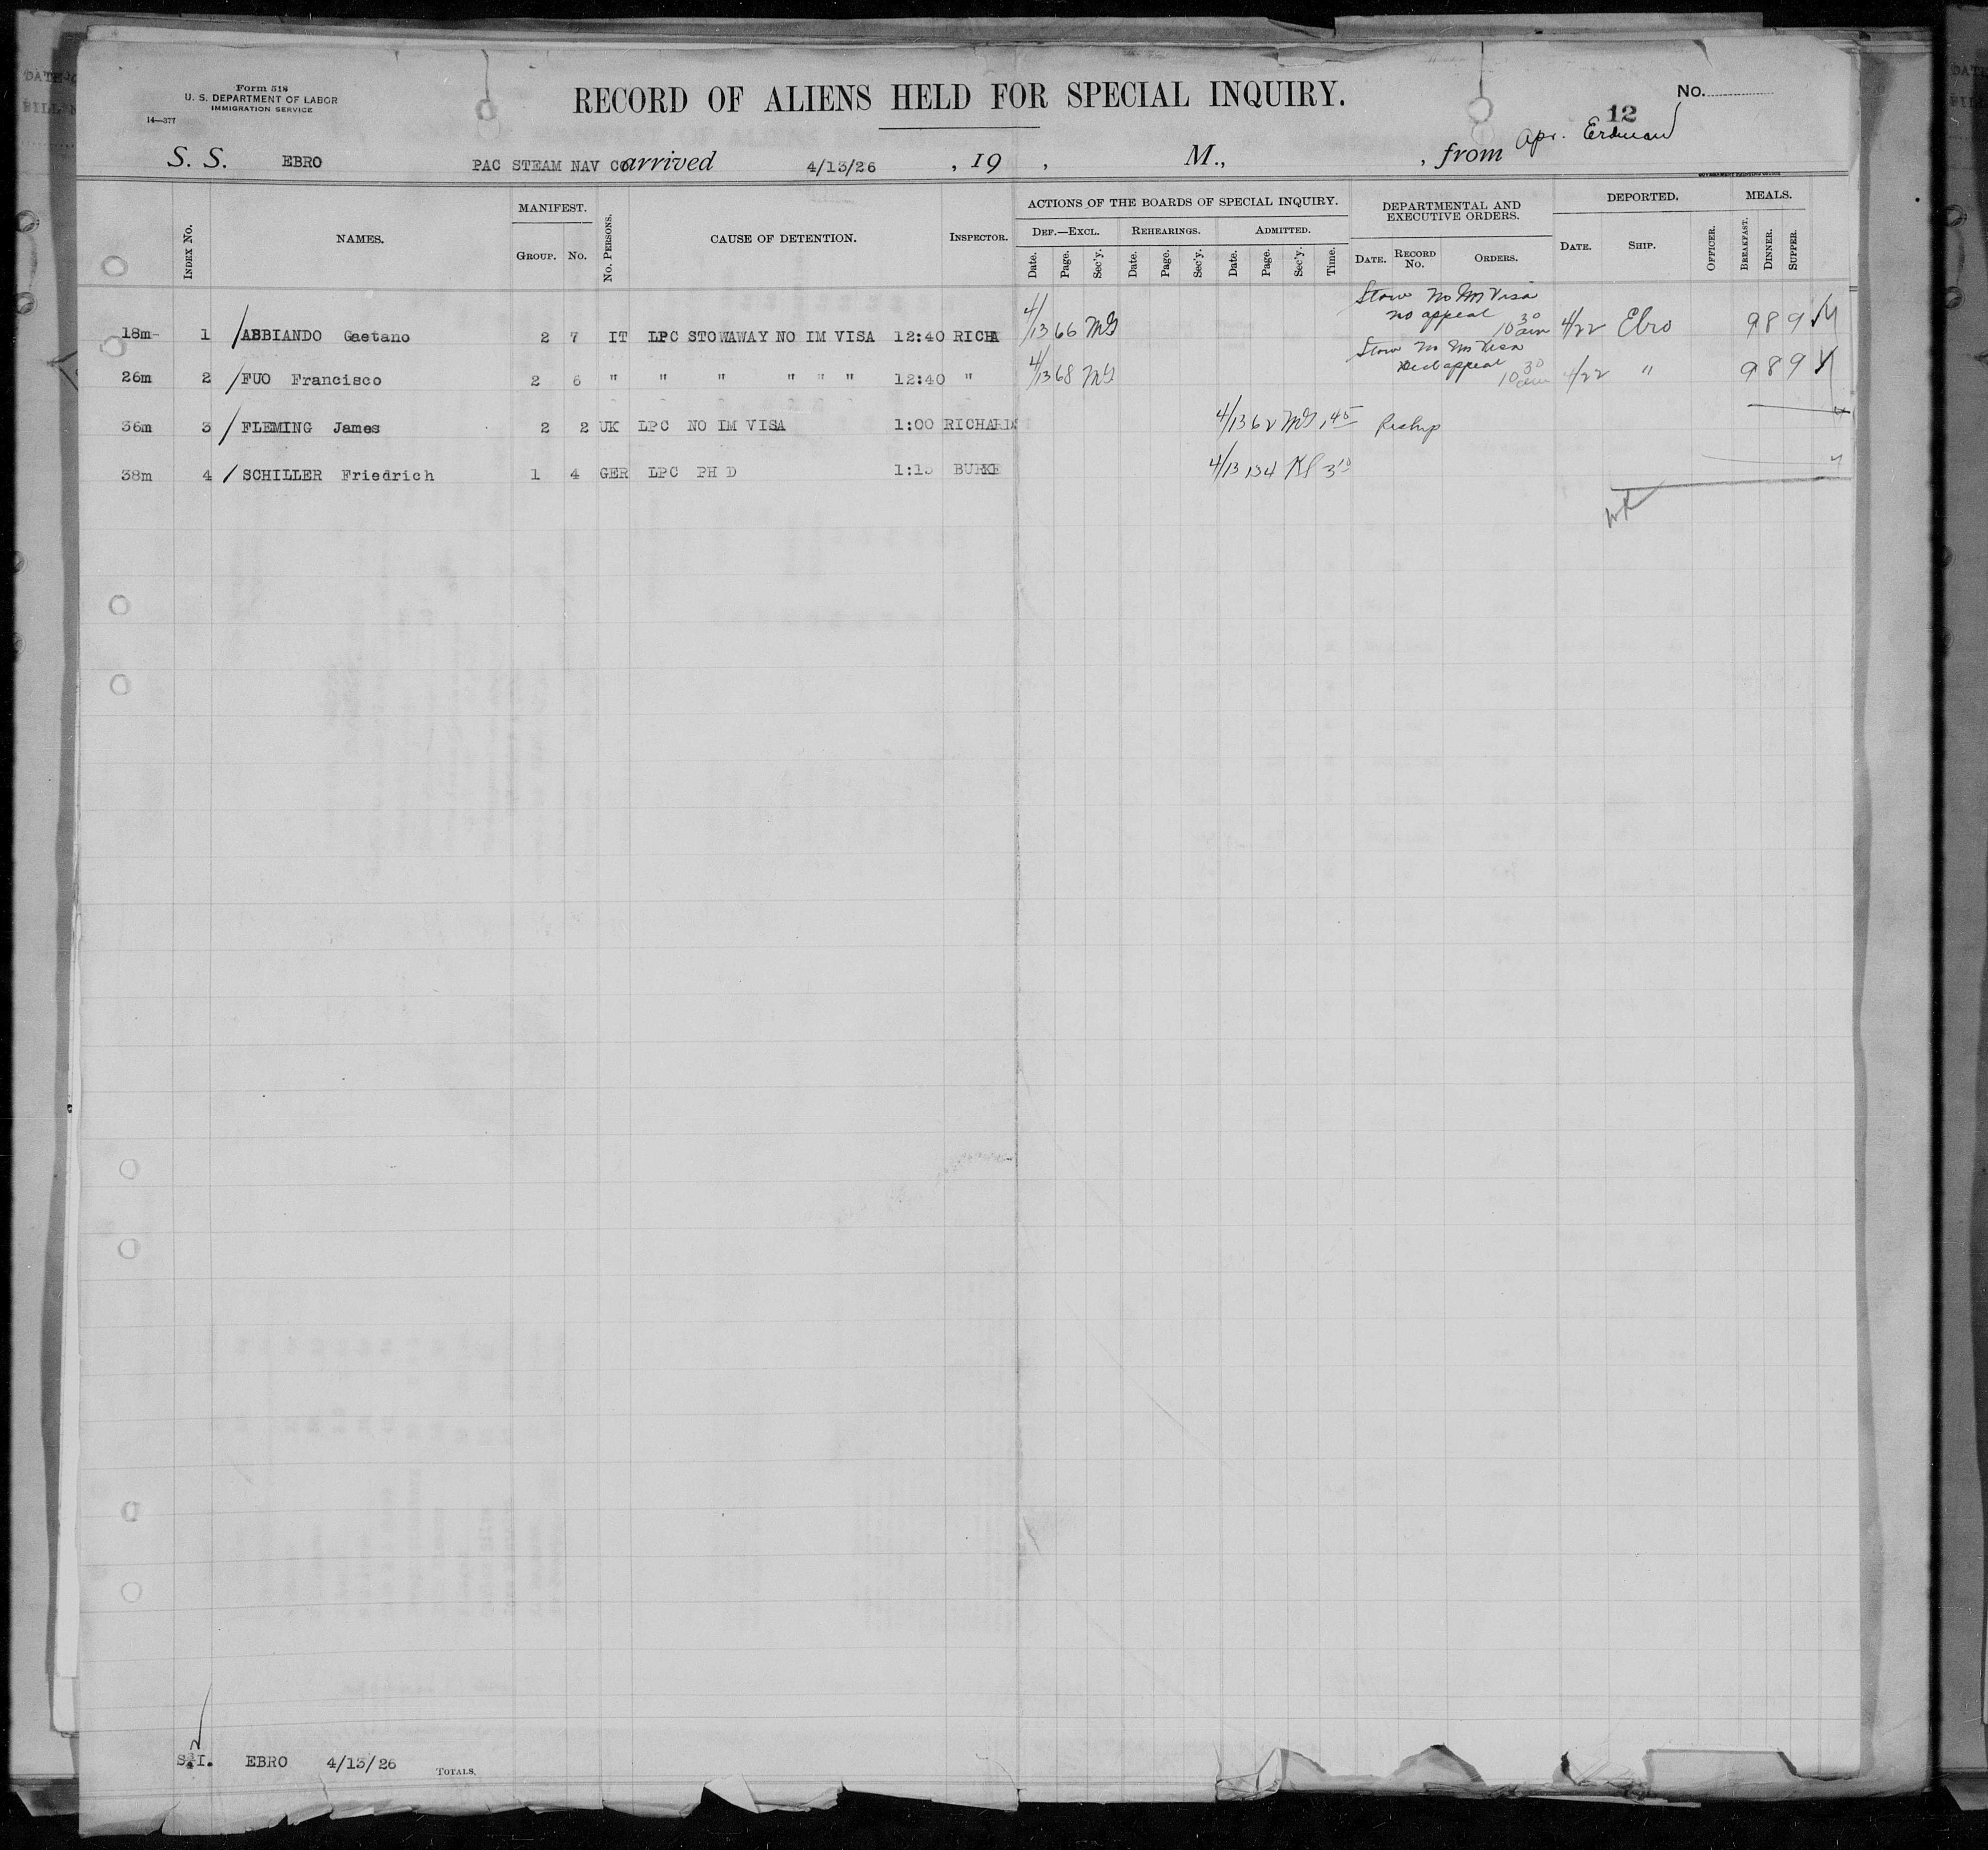 Form 518
U. S. DEPARTMENT OF LABOR
IMMIGRATION SERVICE
14—377
RECORD OF ALIENS HELD FOR SPECIAL INQUIRY.
No.
12
Apr. Erdman
S. S. EBRO PAC STEAM NAV CO arrived 4/13/26 , 19 , M., , from
Index No. NAMES. MANIFEST. GROUP. No. No. PERSONS. CAUSE OF DETENTION. INSPECTOR. ACTIONS OF THE BOARDS OF SPECIAL INQUIRY. DEF.—EXCL. Date. Page. Sec'y. REHEARINGS. Date. Page. Sec'y. ADMITTED. Date. Page. Sec'y. Time. DEPARTMENTAL AND EXECUTIVE ORDERS. DATE. RECORD No. ORDERS. DEPORTED. DATE. SHIP. OFFICER. MEALS. BREAKFAST. DINNER. SUPPER.
Stow No Im Visa
no appeal
18m 1 / ABBIANDO Gaetano 2 7 IT LPC STOWAWAY NO IM VISA 12:40 RICHA 4/13 66 MG 10 30 am 4/22 Ebro 9 8 9
Stow No Im Visa
appeal
26m 2 / FUO Francisco 2 6 " " " " " " 12:40 " 4/13 68 MG 10 30 am 4/22 " 9 8 9
36m 3 / FLEMING James 2 2 UK LPC NO IM VISA 1:00 RICHARDS 4/13 62 MG 1 45 Reship
38m 4 / SCHILLER Friedrich 1 4 GER LPC PH D 1:15 BURKE 4/13 134 3 10
S.I. EBRO 4/13/26 TOTALS.